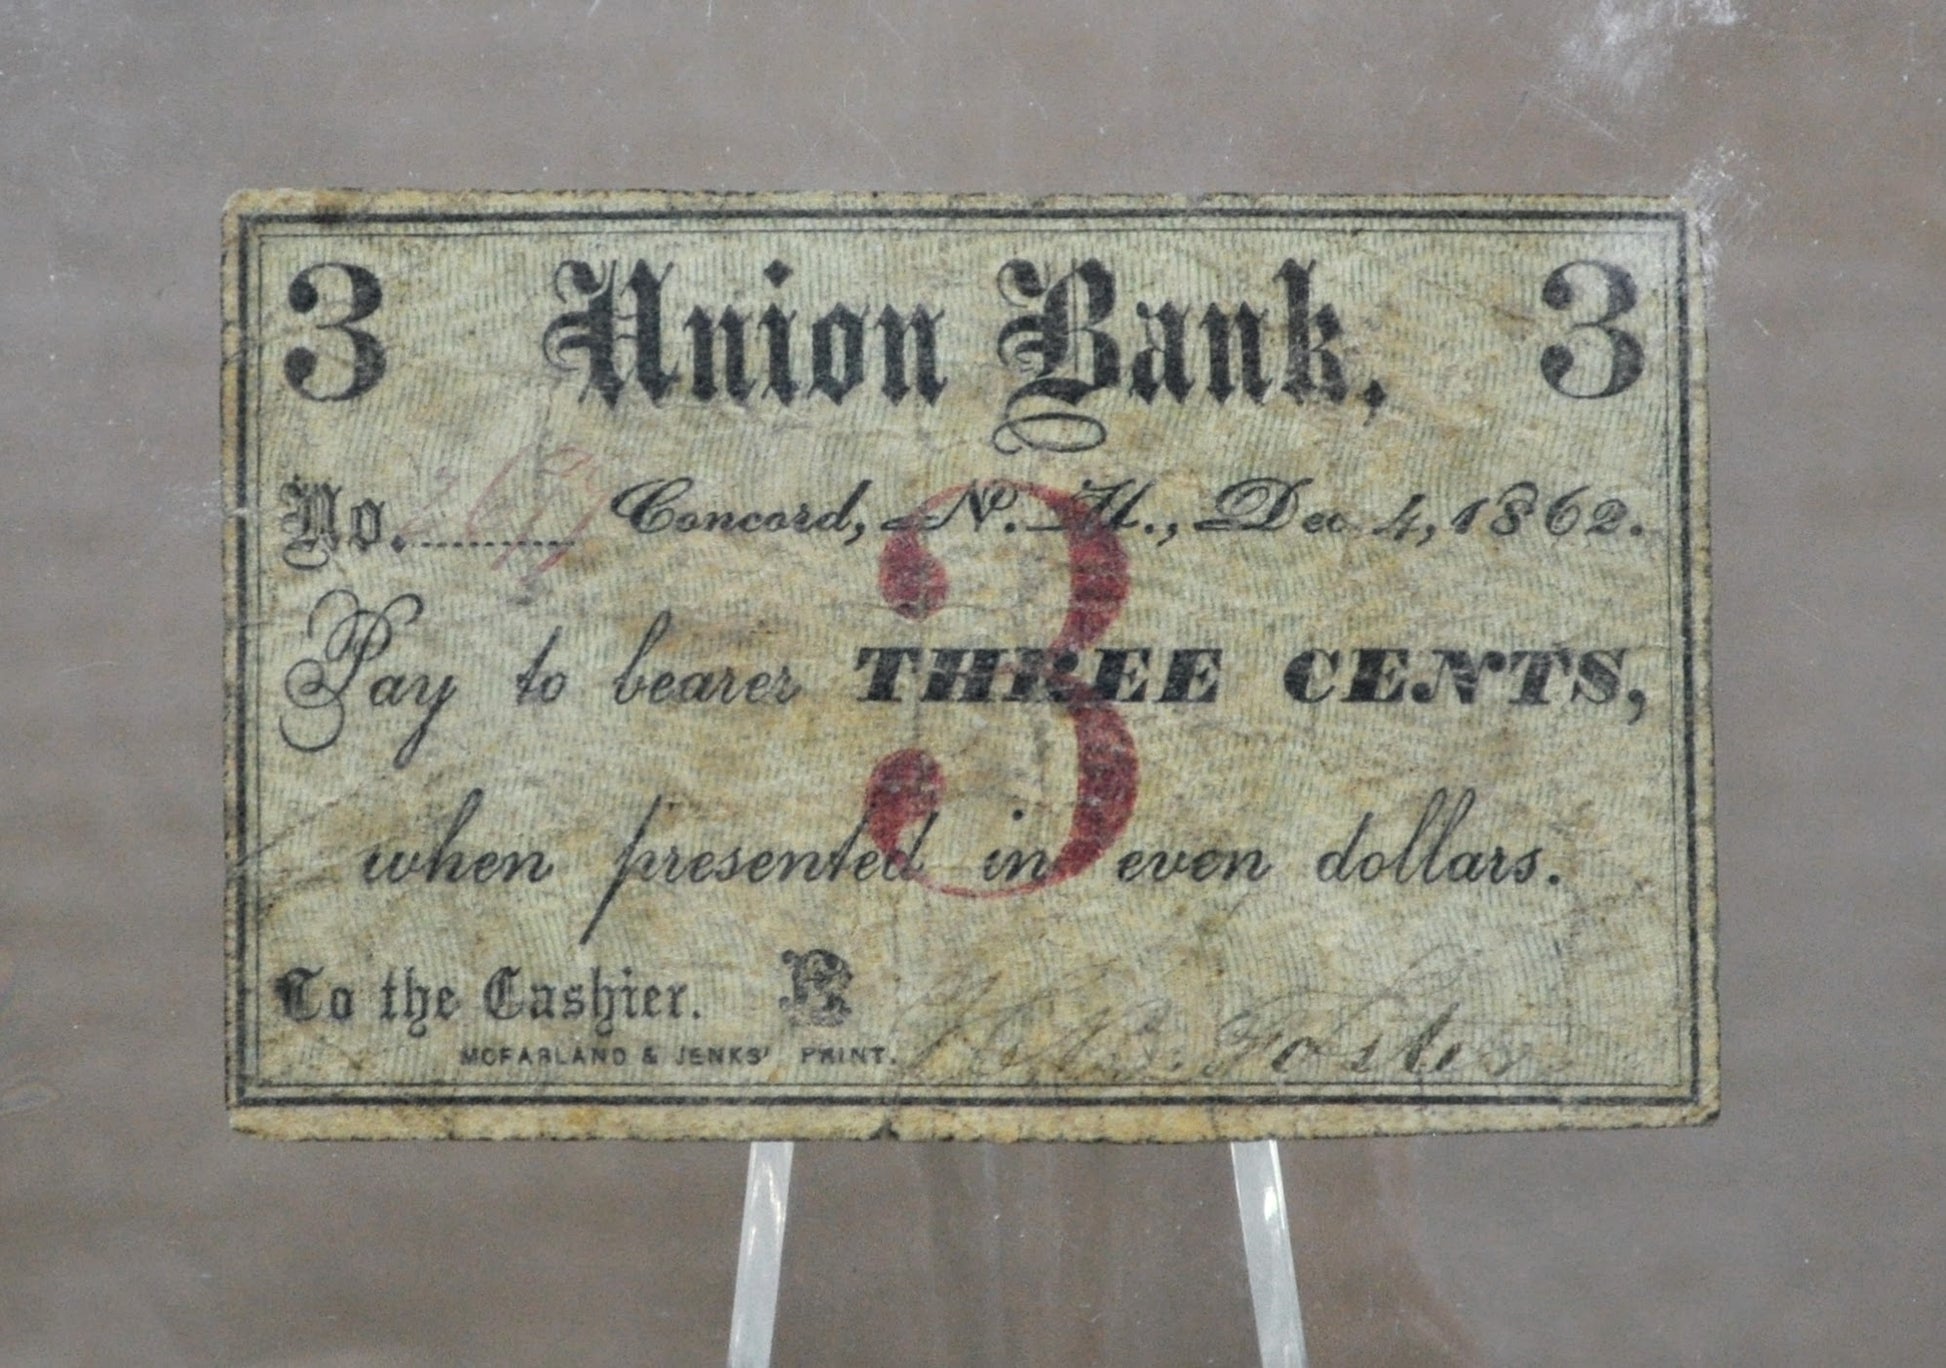 3 Union Bank, 3
No. Concord, N. H., Dec. 4, 1862.
3
Pay to bearer THREE CENTS,
when presented in even dollars.
To the Cashier.
MCFARLAND & JENKS' PRINT.
Foster